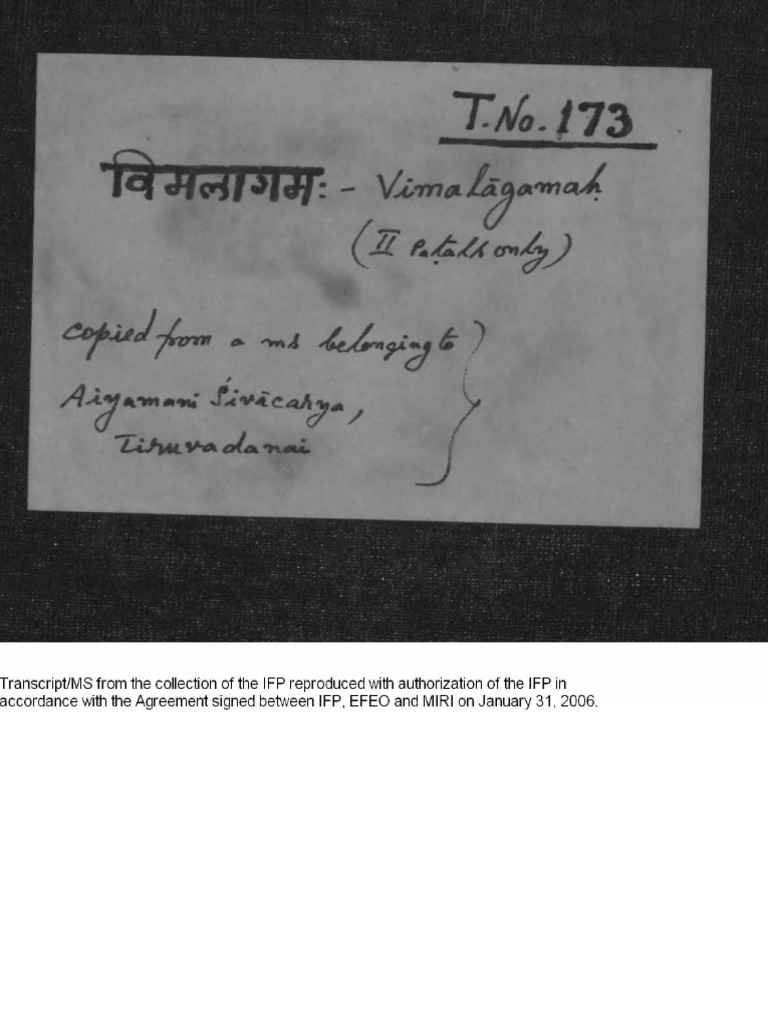 T.No. 173
विमलागमः - Vimalāgamaḥ
(II Paṭala only)
copied from a ms belonging to
Aiyamani Śivācarya,
Tiruvadanai
Transcript/MS from the collection of the IFP reproduced with authorization of the IFP in
accordance with the Agreement signed between IFP, EFEO and MIRI on January 31, 2006.